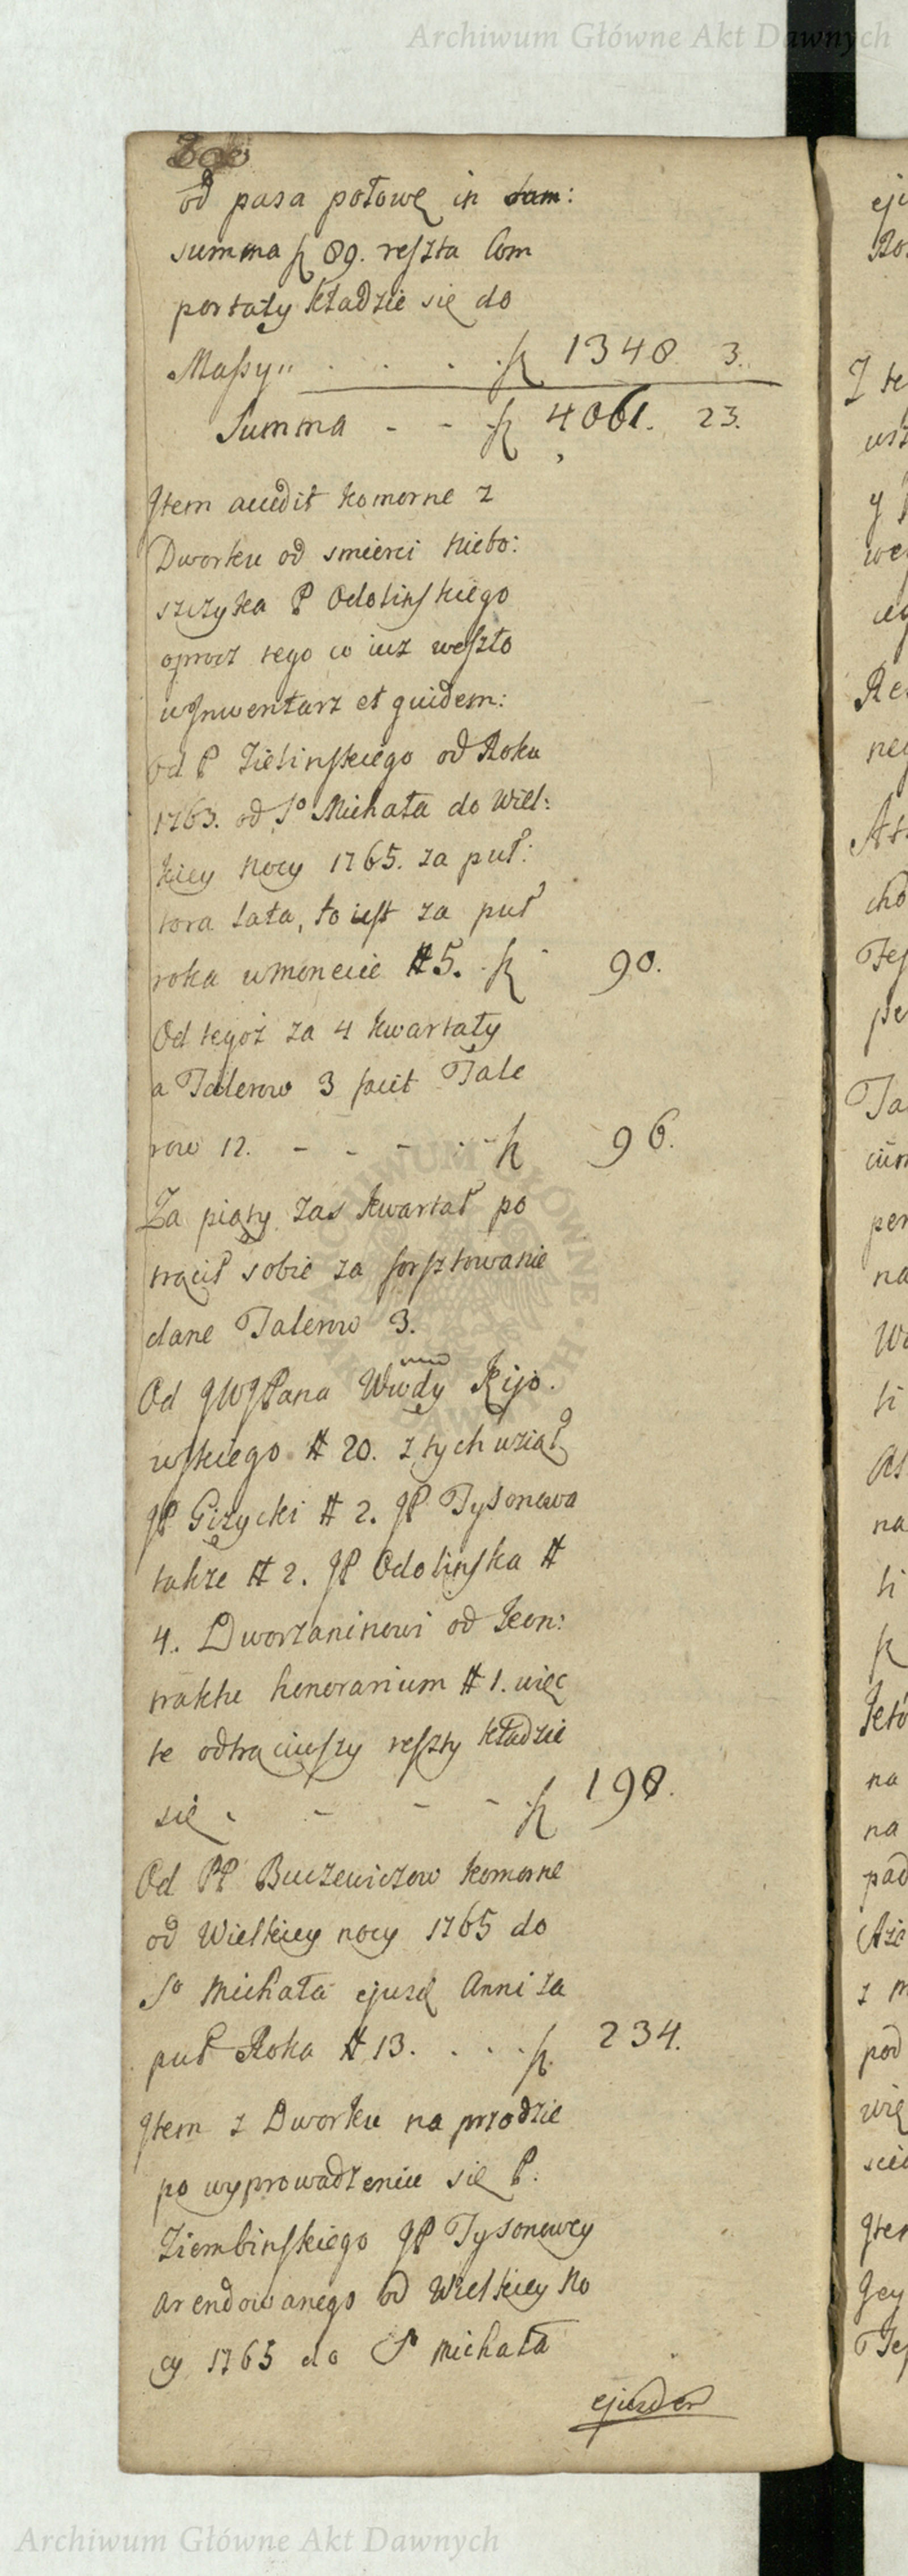 Archiwum Główne Akt Dawnych
od pasa połowę in
summa f 89. reszta Com
portaty kładzie się do
Massy,, . . . . f 1348 3.
Summa - - f 4061. 23.
Jtem accedit komorne z
Dworku od smierci Niebo:
szczyka P Odolinskiego
oprocz tego co iuz weszło
w Jnwentarz et quidem:
od P Zielinskiego od Roku
1763. od So Michała do Wiel:
kiey Nocy 1765. za puł:
tora lata, to iest za puł
roka w monecie # 5. f 90.
Od tegoż za 4 kwartały
a Talerow 3 facit Tale
row 12. - - - - f 96.
Za piąty zas kwartał po
trącił sobie za forsztowanie
dane Talerow 3.
Od JWJPana Wwdy Kijo.
wskiego # 20. z tych wziął
JP Giżycki # 2. JP Tysonowa
także # 2. JP Odolinska #
4. Dworzaninowi od kon:
traktu honorarium # 1. więc
te odtrąciwszy reszty kładzie
się . - - - f 198.
Od PP Buczewiczow komorne
od Wielkiey nocy 1765 do
So Michała ejusd Anni za
puł Roka # 13. . . . f. 234.
Jtem z Dworku na przodzie
po wyprowadzeniu się P.
Ziembinskiego JP Tysonowey
arendowanego od Wielkiey No
cy 1765 do So Michała
ejusdem
Archiwum Główne Akt Dawnych